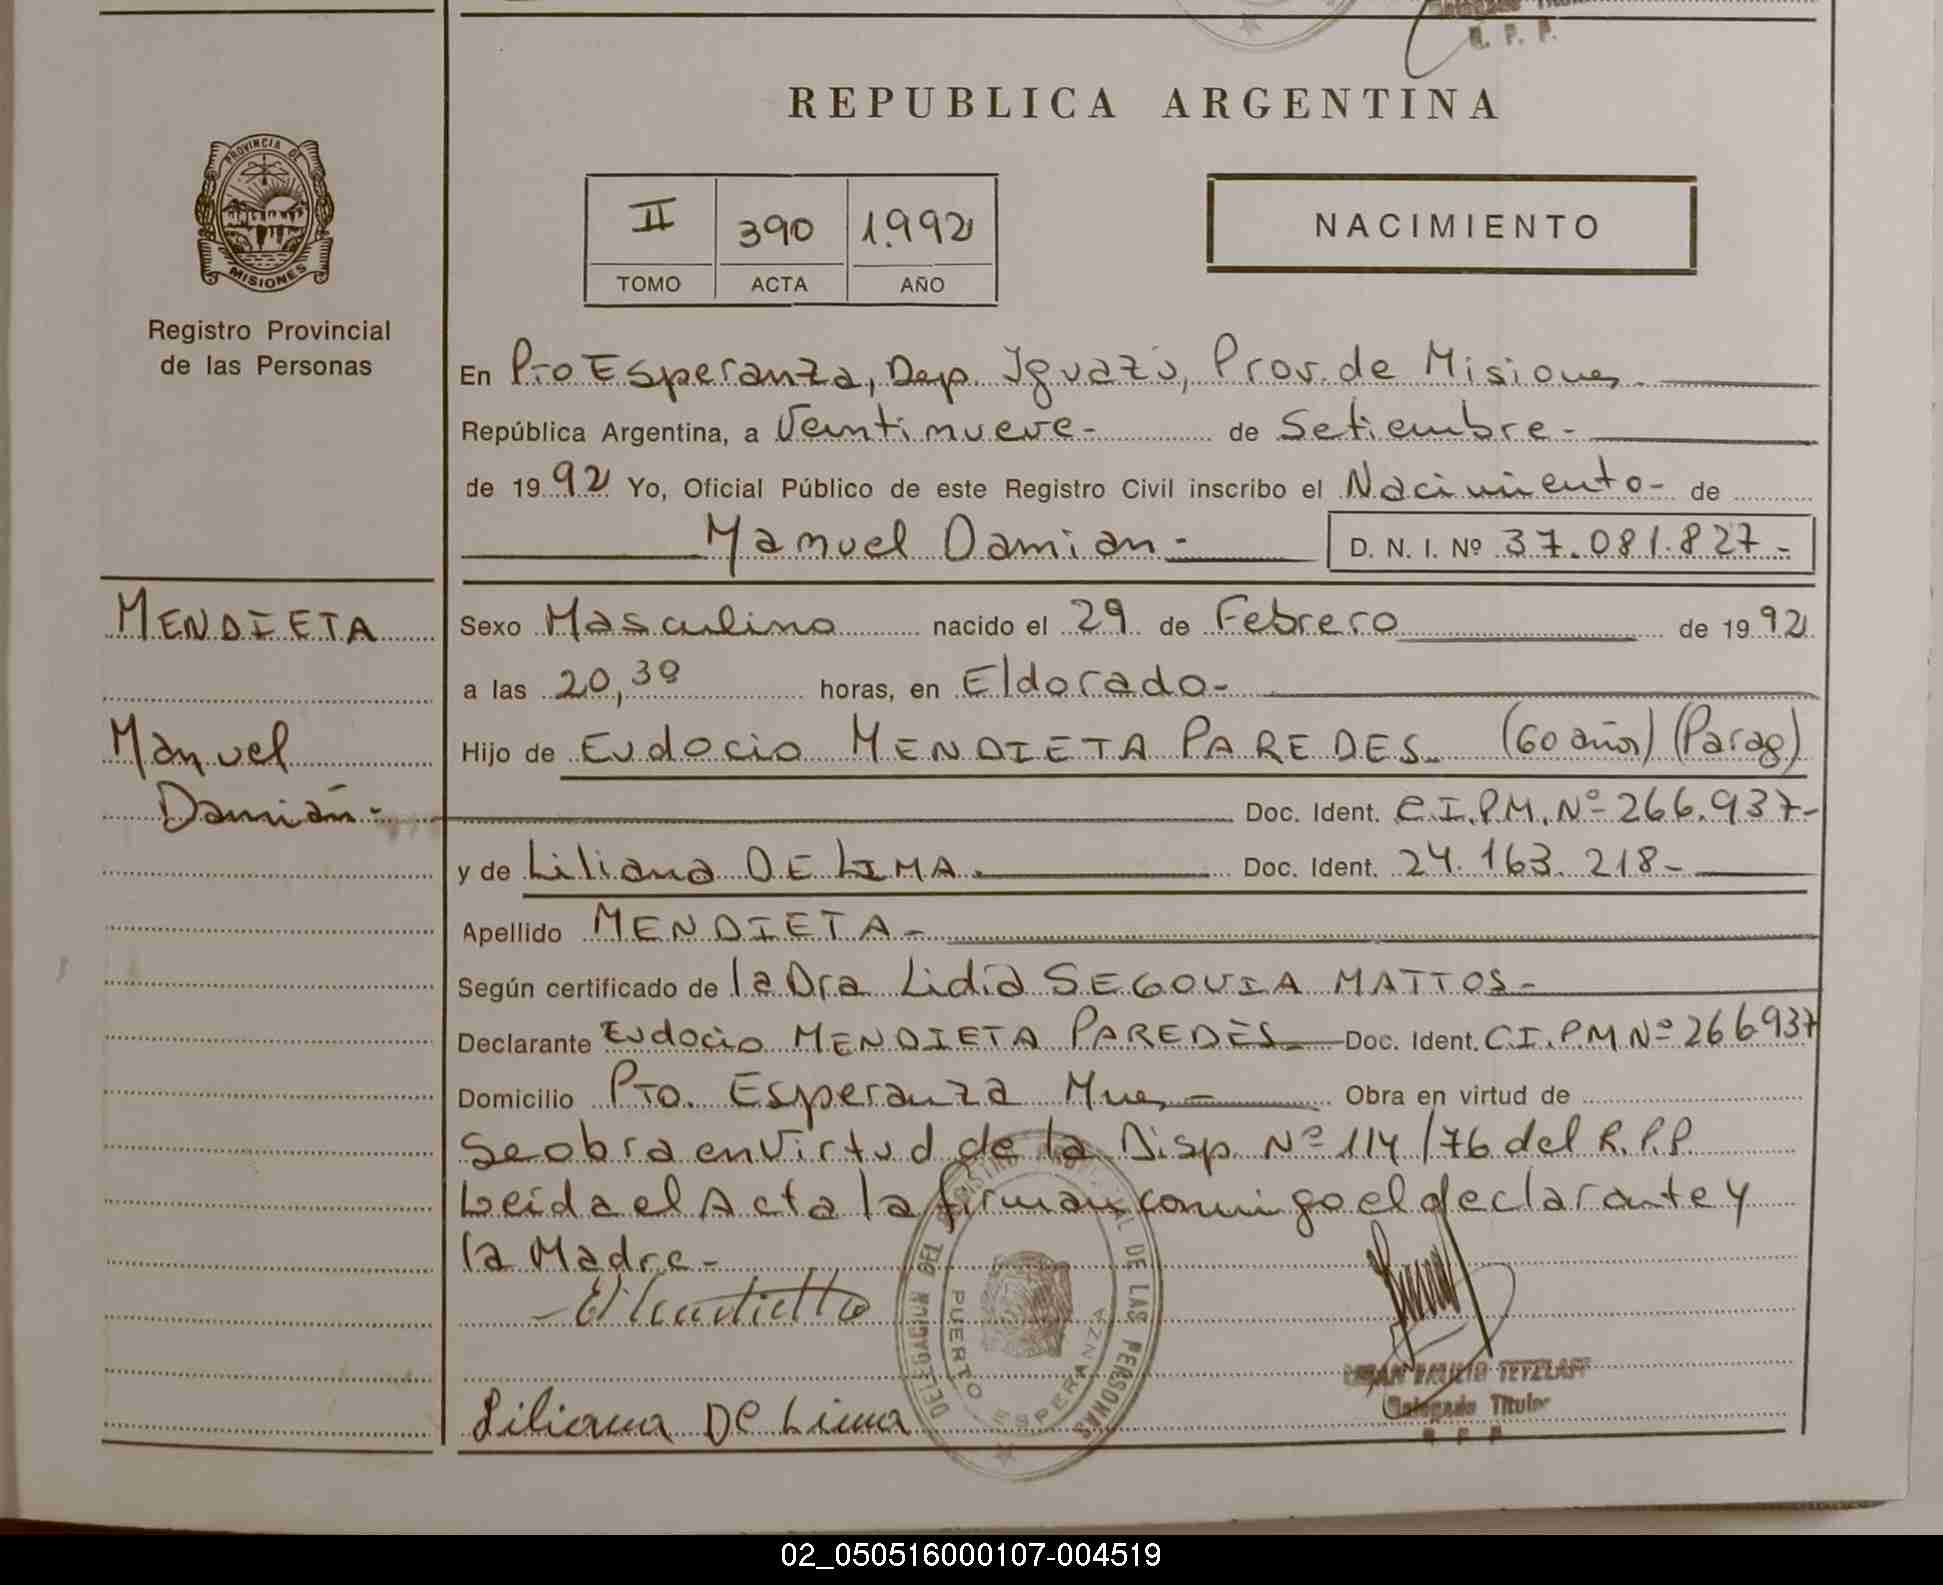 R. P. P.
REPUBLICA ARGENTINA
PROVINCIA DE
MISIONES
Registro Provincial
de las Personas
II 390 1.992
TOMO ACTA AÑO
NACIMIENTO
En Pto Esperanza, Dep. Iguazú, Prov. de Misiones
República Argentina, a Veintinueve - de Setiembre -
de 1992 Yo, Oficial Público de este Registro Civil inscribo el Nacimiento - de
Manuel Damian - D. N. I. Nº 37.081.827 -
MENDIETA
Manuel
Damián -
Sexo Masculino nacido el 29 de Febrero de 1992
a las 20,30 horas, en Eldorado -
Hijo de Eudocio MENDIETA PAREDES (60 años) (Parag)
Doc. Ident. C.I.P.M. Nº 266.937-
y de Liliana DE LIMA. Doc. Ident. 24.163.218-
Apellido MENDIETA -
Según certificado de la Dra Lidia SEGOVIA MATTOS -
Declarante Eudocio MENDIETA PAREDES Doc. Ident. C.I.P.M Nº 266937
Domicilio Pto. Esperanza Mnes - Obra en virtud de
Se obra en Virtud de la Disp. Nº 114/76 del R.P.P.
Leida el Acta la firman conmigo el declarante y
la Madre -
Liliana De Lima
DELEGACION DEL REGISTRO PROVINCIAL DE LAS PERSONAS
PUERTO ESPERANZA
EMILIO TETZLAFF
Delegado Titular
R P P
02_050516000107-004519